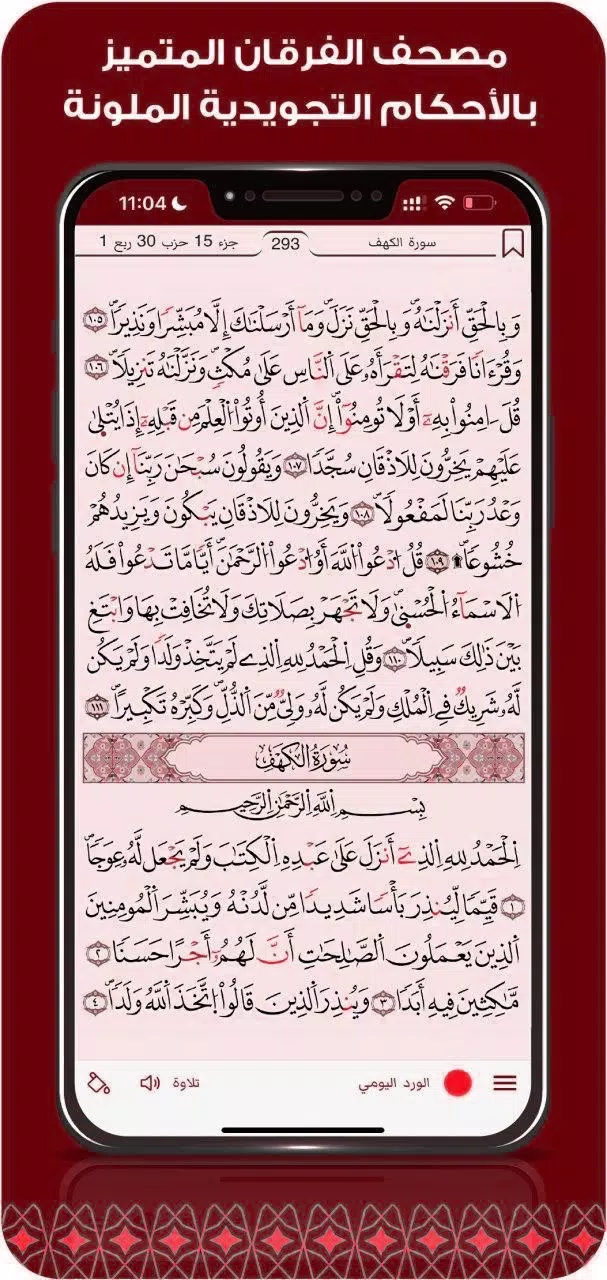 مصحف الفرقان المتميز
بالأحكام التجويدية الملونة
11:04
سورة الكهف
293
جزء 15 حزب 30 ربع 1
وَبِالْحَقِّ أَنزَلْنَٰهُ وَبِالْحَقِّ نَزَلَۖ وَمَآ أَرْسَلْنَٰكَ إِلَّا مُبَشِّرٗا وَنَذِيرٗاۖ ١٠٥
وَقُرْءَانٗا فَرَقْنَٰهُ لِتَقْرَأَهُۥ عَلَى اَلنَّاسِ عَلَىٰ مُكْثٖ وَنَزَّلْنَٰهُ تَنزِيلٗاۖ ١٠٦
قُلَ ـ​امِنُواْ بِهِۦٓ أَوْ لَا تُومِنُوٓاْۖ إِنَّ اَلذِينَ أُوتُواْ اُلْعِلْمَ مِن قَبْلِهِۦٓ إِذَا يُتْلَىٰ
عَلَيْهِمْ يَخِرُّونَ لِلَاذْقَانِ سُجَّدٗا ١٠٧ وَيَقُولُونَ سُبْحَٰنَ رَبِّنَآ إِن كَانَ
وَعْدُ رَبِّنَا لَمَفْعُولٗاۖ ١٠٨ وَيَخِرُّونَ لِلَاذْقَانِ يَبْكُونَ وَيَزِيدُهُمْ
خُشُوعٗا۩ ١٠٩ قُلُ اُدْعُواْ اُللَّهَ أَوُ اُدْعُواْ اُلرَّحْمَٰنَۖ أَيّٗا مَّا تَدْعُواْ فَلَهُ
اُلَاسْمَآءُ اُلْحُسْنَىٰۖ وَلَا تَجْهَرْ بِصَلَاتِكَ وَلَا تُخَافِتْ بِهَا وَابْتَغِ
بَيْنَ ذَٰلِكَ سَبِيلٗاۖ ١١٠ وَقُلِ اِلْحَمْدُ لِلهِ اِلذِے لَمْ يَتَّخِذْ وَلَدٗا وَلَمْ يَكُن
لَّهُۥ شَرِيكٞ فِے اِلْمُلْكِ وَلَمْ يَكُن لَّهُۥ وَلِيّٞ مِّنَ اَلذُّلِّۖ وَكَبِّرْهُ تَكْبِيراٗۖ ١١١
سُورَةُ الْكَهْفِ
بِسْمِ اِللَّهِ اِلرَّحْمَٰنِ اِلرَّحِيمِ
اِلْحَمْدُ لِلهِ اِلذِےٓ أَنزَلَ عَلَىٰ عَبْدِهِ اِلْكِتَٰبَ وَلَمْ يَجْعَل لَّهُۥ عِوَجاٗۖ
١ قَيِّمٗا لِّيُنذِرَ بَأْسٗا شَدِيدٗا مِّن لَّدُنْهُ وَيُبَشِّرَ اَلْمُومِنِينَ
اَلذِينَ يَعْمَلُونَ اَلصَّٰلِحَٰتِ أَنَّ لَهُمُۥٓ أَجْرًا حَسَنٗا ٢
مَّٰكِثِينَ فِيهِ أَبَدٗا ٣ وَيُنذِرَ اَلذِينَ قَالُواْ اُتَّخَذَ اَللَّهُ وَلَدٗاۖ ٤
الورد اليومي
تلاوة